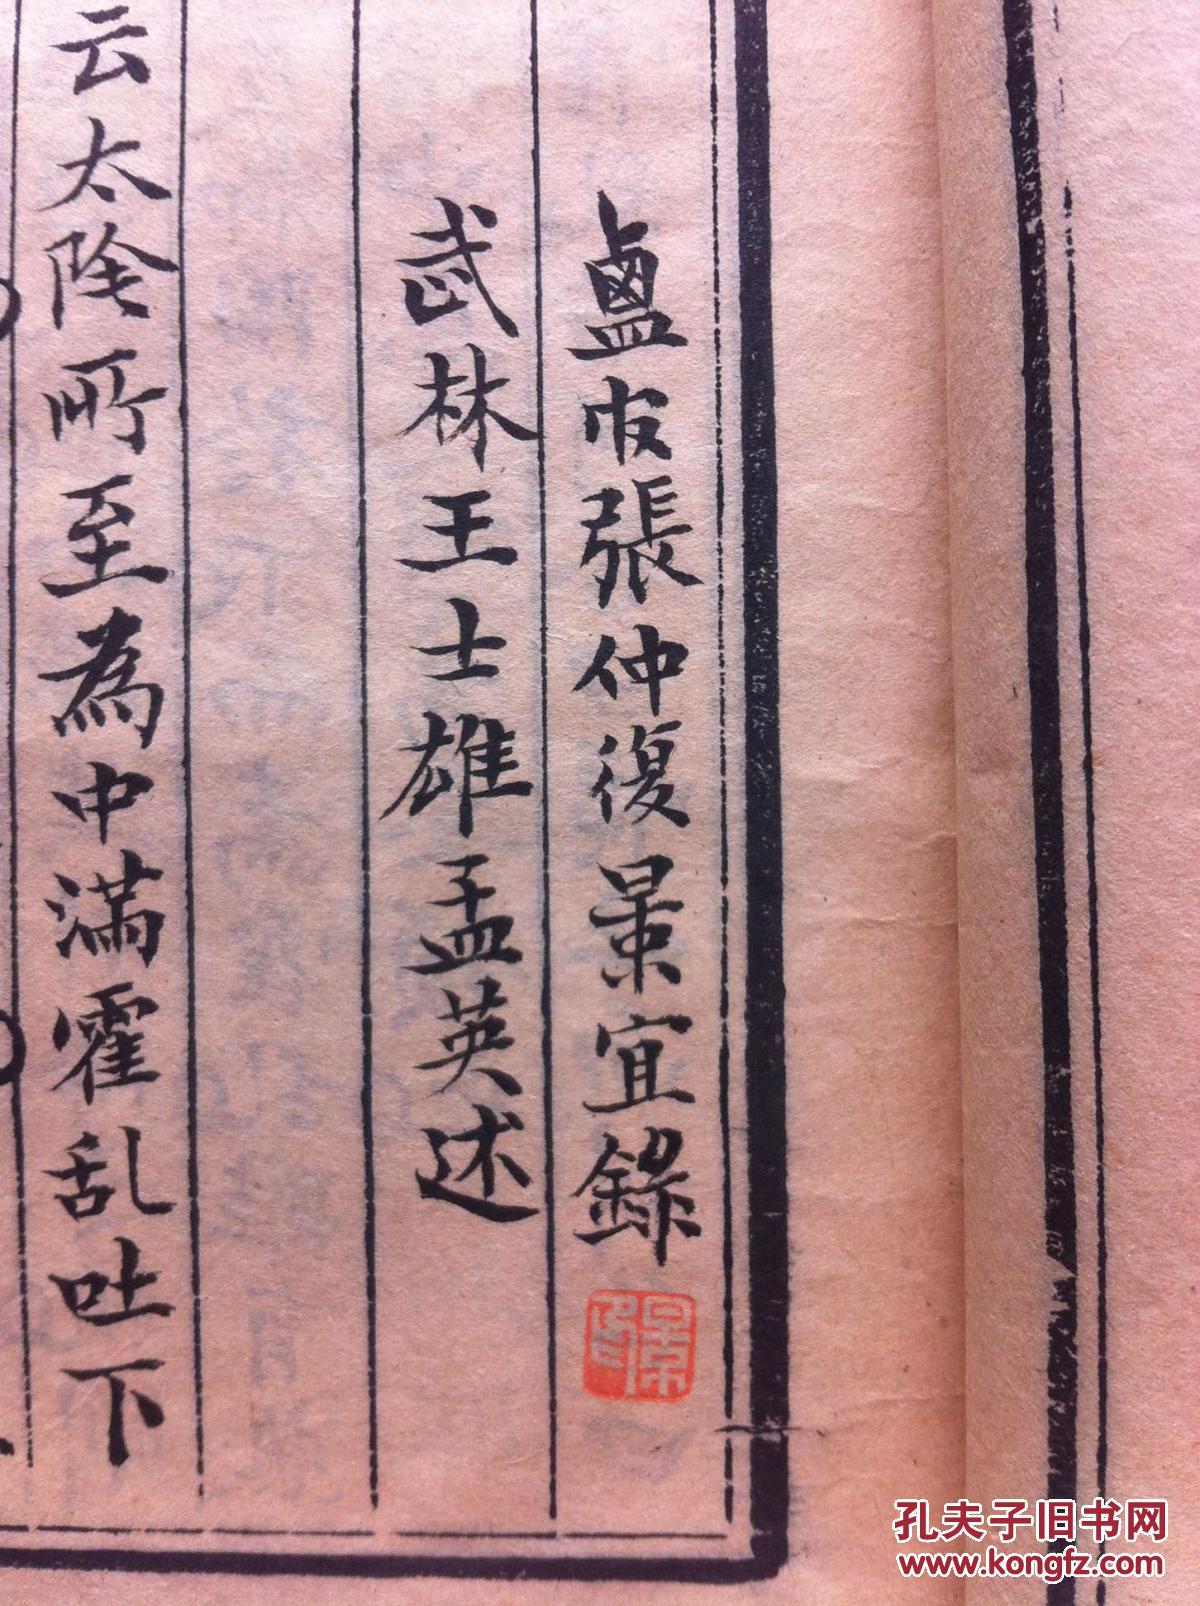 䀋張仲復景宜錄
武林王士雄孟英述
云太陰所至為中滿霍乱吐下
孔夫子旧书网
www.kongfz.com